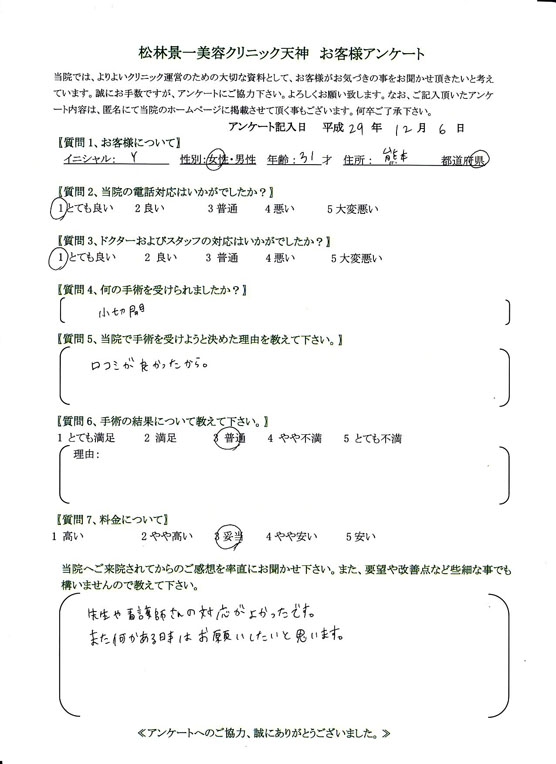 松林景一美容クリニック天神 お客様アンケート
当院では、よりよいクリニック運営のための大切な資料として、お客様がお気づきの事をお聞かせ頂きたいと考え
ています。誠にお手数ですが、アンケートにご協力下さい。よろしくお願い致します。なお、ご記入頂いたアンケ
ート内容は、匿名にて当院のホームページに掲載させて頂く事もございます。何卒ご了承下さい。
アンケート記入日 平成 29 年 12 月 6 日
〖質問1、お客様について〗
イニシャル: Y 性別:女性・男性 年齢:31才 住所: 熊本 都道府県
〖質問2、当院の電話対応はいかがでしたか?〗
1とても良い 2良い 3普通 4悪い 5大変悪い
〖質問3、ドクターおよびスタッフの対応はいかがでしたか?〗
1とても良い 2 良い 3 普通 4悪い 5大変悪い
〖質問4、何の手術を受けられましたか?〗
小切開
〖質問5、当院で手術を受けようと決めた理由を教えて下さい。〗
口コミが良かったから。
〖質問6、手術の結果について教えて下さい。〗
1 とても満足 2 満足 3 普通 4 やや不満 5 とても不満
理由:
〖質問7、料金について〗
1 高い 2やや高い 3妥当 4やや安い 5安い
当院へご来院されてからのご感想を率直にお聞かせ下さい。また、要望や改善点など些細な事でも
構いませんので教えて下さい。
先生や看護師さんの対応がよかったです。
また何かある時はお願いしたいと思います。
≪アンケートへのご協力、誠にありがとうございました。≫